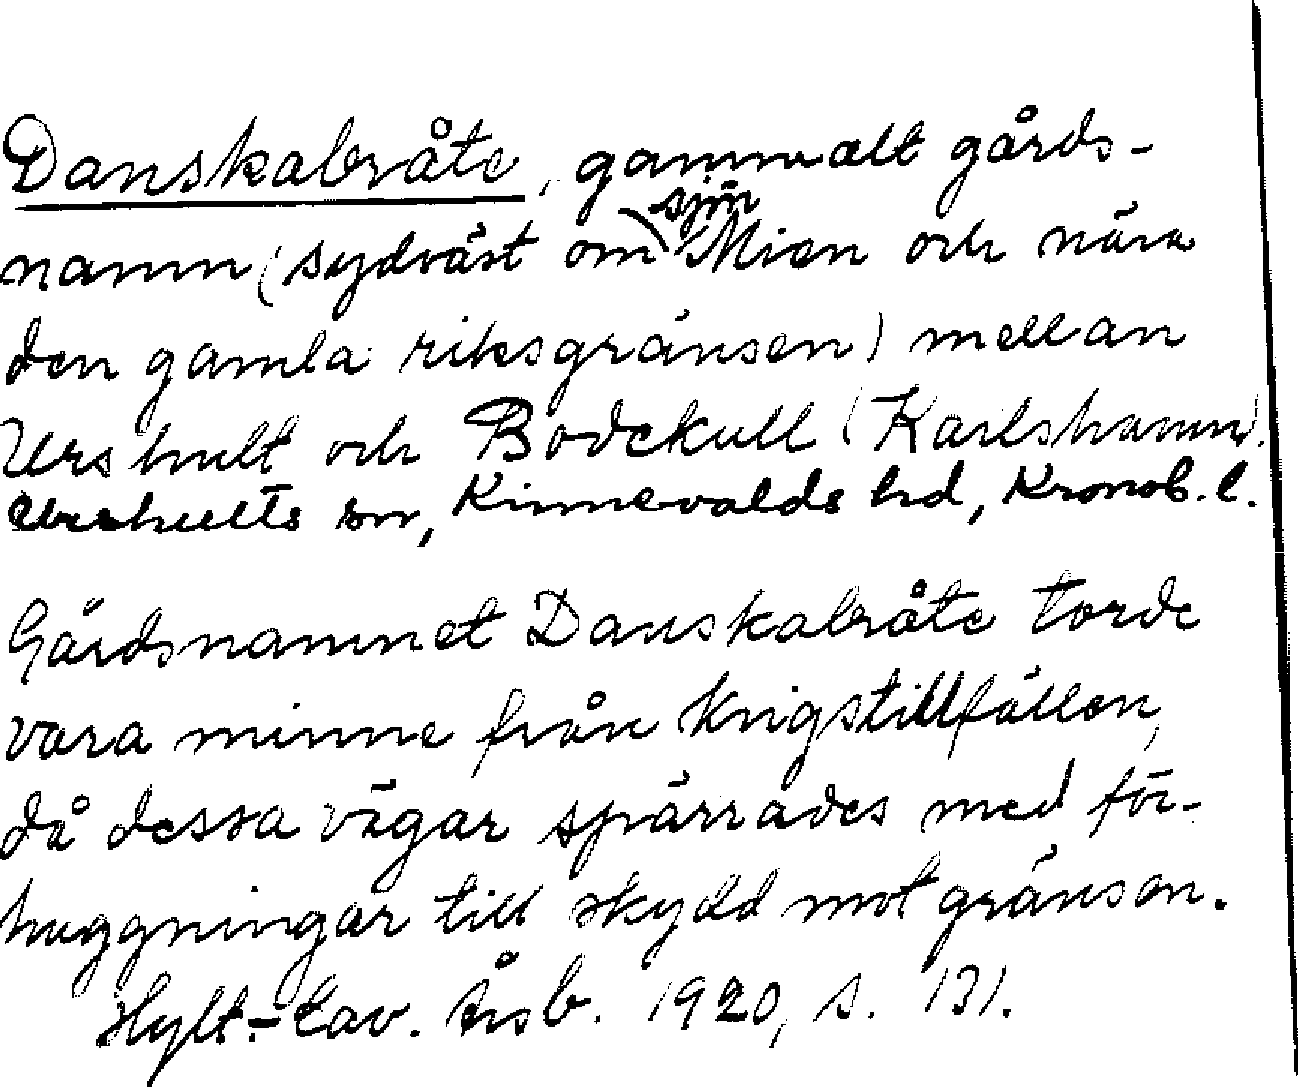 Danskabråte, gammalt gårds-
namn (sydväst om sjön Mien och nära
den gamla riksgränsen) mellan
Urshult och Bodekull (Karlshamn).
Urshults sn, Kinnevalds hd, Kronob. l.
Gårdsnamnet Danskabråte torde
vara minne från krigstillfällen,
då dessa vägar spärrades med för-
huggningar till skydd mot gränsen.
Hylt.-Cav. årsb. 1920, s. 131.